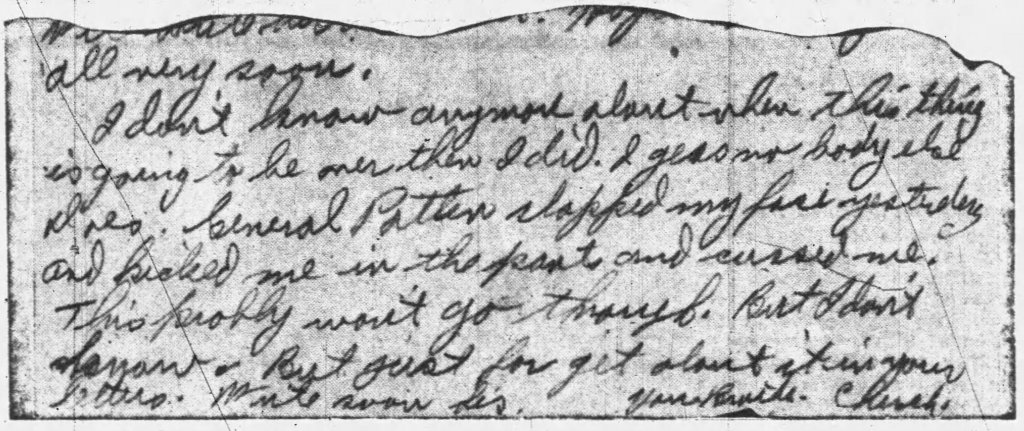 all very soon.
I don't know anymore about when this thing
is going to be over then I did. I gess no body else
does. General Patten slapped my face yesterday
and kicked me in the pants and cussed me.
This probly won't go though. But I don't
know. But just for get about it in your
letters. Write soon Sis.